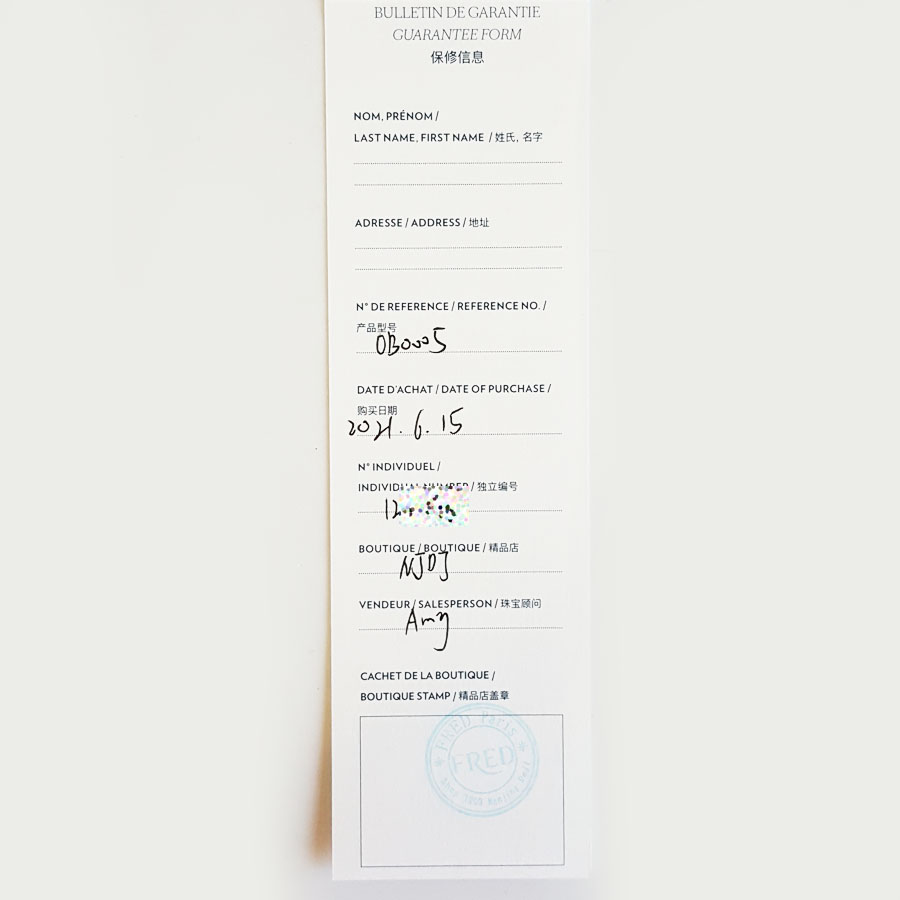 BULLETIN DE GARANTIE
GUARANTEE FORM
保修信息
NOM, PRÉNOM /
LAST NAME, FIRST NAME / 姓氏, 名字
ADRESSE / ADDRESS / 地址
N° DE REFERENCE / REFERENCE NO. /
产品型号
0B0005
DATE D'ACHAT / DATE OF PURCHASE /
购买日期
2021.6.15
N° INDIVIDUEL /
INDIVIDUAL NUMBER / 独立编号
BOUTIQUE / BOUTIQUE / 精品店
NJDJ
VENDEUR / SALESPERSON / 珠宝顾问
Amy
CACHET DE LA BOUTIQUE /
BOUTIQUE STAMP / 精品店盖章
FRED Paris
FRED